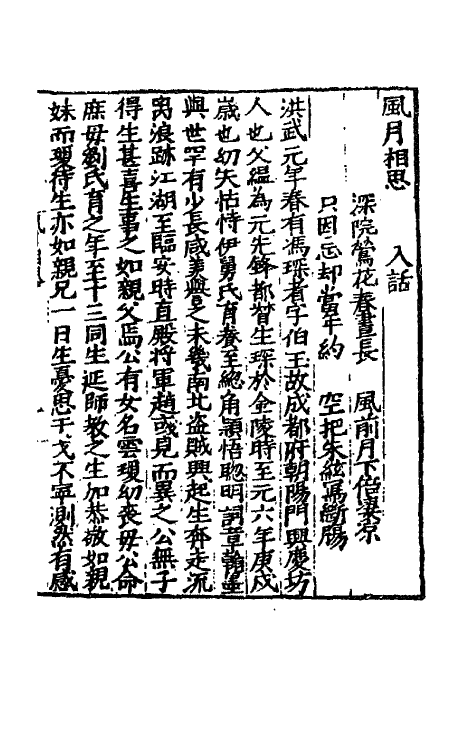 風月相思　入話
深院鶯花春晝長　風前月下倍淒凉
只因忘却當年約　空把朱絃寫斷腸
洪武元年春有馮琛者字伯玉故成都府朝陽門興慶坊
人也父縕為元先鋒都督生琛於金陵時至元六年庚戍
歲也幼失怙恃伊舅氏育養至總角頴悟聦明詞章翰墨
與世罕有少長咸羙與之未幾南北盗賊興起生奔走流
离浪跡江湖至臨安時直殿将軍趙彧見而異之公無子
得生甚喜生事之如親父焉公有女名雲瓊幼丧毋公命
庶毋劉氏育之年至十三同生延師教之生加恭敬如親
妹而瓊待生亦如親兄一日生憂思干戈不寧測然有感